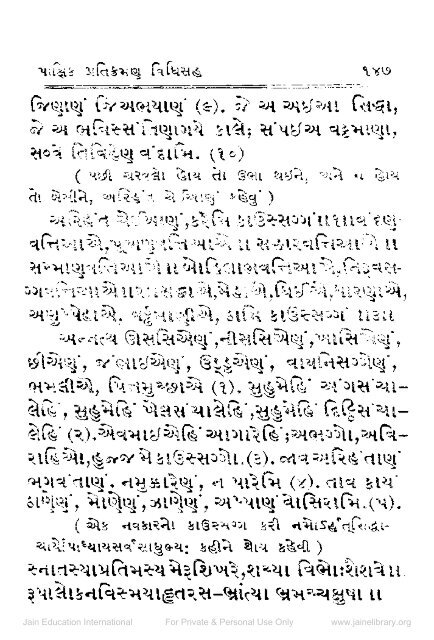 પાક્ષિક પ્રતિક્રમણ વિધિસહ ૧૪૭
જિણાણં જિઅભયાણં (૯). જે અ અઈઆ સિદ્ધા,
જે અ ભવિસ્સંતિણાગયે કાલે; સંપઈઅ વટ્ટમાણા,
સવ્વે તિવિહેણ વંદામિ. (૧૦)
( પછી ચરવળો હોય તો ઉભા થઇને, અને ન હોય
તો બેસીને, અરિહંત ચેઈઆણં કહેવું )
અરિહંત ચેઈઆણં,કરેમિ કાઉસ્સગ્ગં॥૧॥વંદણ-
વત્તિઆએ,પૂઅણવત્તિઆએ ॥ સક્કારવત્તિઆએ ॥
સમ્માણવત્તિઆએ॥ બોહિલાભવત્તિઆએ,નિરુવસ-
ગ્ગવત્તિઆએ॥૨॥સદ્ધાએ,મેહાએ,ધિઈએ,ધારણાએ,
અણુપ્પેહાએ. વડ્ઢમાણીએ, ઠામિ કાઉસગ્ગં ॥૩॥
અન્નત્થ ઊસસિએણં,નીસસિએણં,ખાસિએણં,
છીએણં, જંભાઈએણં, ઉડ્ડુએણં, વાયનિસગ્ગેણં,
ભમલીએ, પિત્તમુચ્છાએ (૧). સુહુમેહિં અંગસંચા-
લેહિં, સુહુમેહિં ખેલસંચાલેહિં,સુહુમેહિં દિટ્ઠિસંચા-
લેહિં (૨).એવમાઈએહિં આગારેહિં;અભગ્ગો,અવિ-
રાહિઓ,હુજ્જ મે કાઉસગ્ગો.(૩). જાવ અરિહંતાણં
ભગવંતાણં, નમુક્કારેણં, ન પારેમિ (૪). તાવ કાયં
ઠાણેણં, મોણેણં,ઝાણેણં, અપ્પાણં વોસિરામિ.(૫).
( એક નવકારનો કાઉસગ્ગ કરી નમોઽર્હત્સિદ્ધા-
ચાર્યોપાધ્યાયસર્વસાધુભ્યઃ કહીને થોય કહેવી )
સ્નાતસ્યાપ્રતિમસ્ય મેરૂશિખરે,શચ્યા વિભોઃશૈશવે॥
રૂપાલોકનવિસ્મયાહૃતરસ-ભ્રાંત્યા ભ્રમચ્ચક્ષુષા ॥
Jain Education International For Private & Personal Use Only www.jainelibrary.org